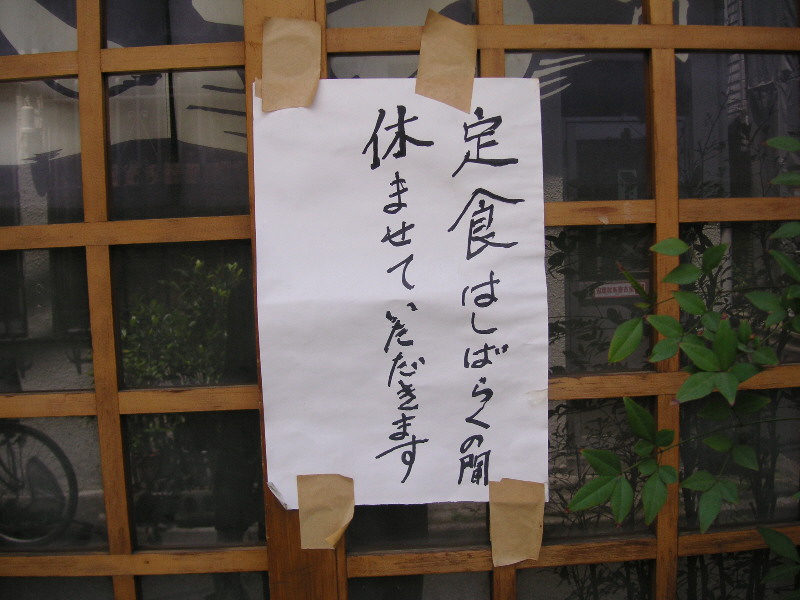 定食はしばらくの間
休ませていただきます